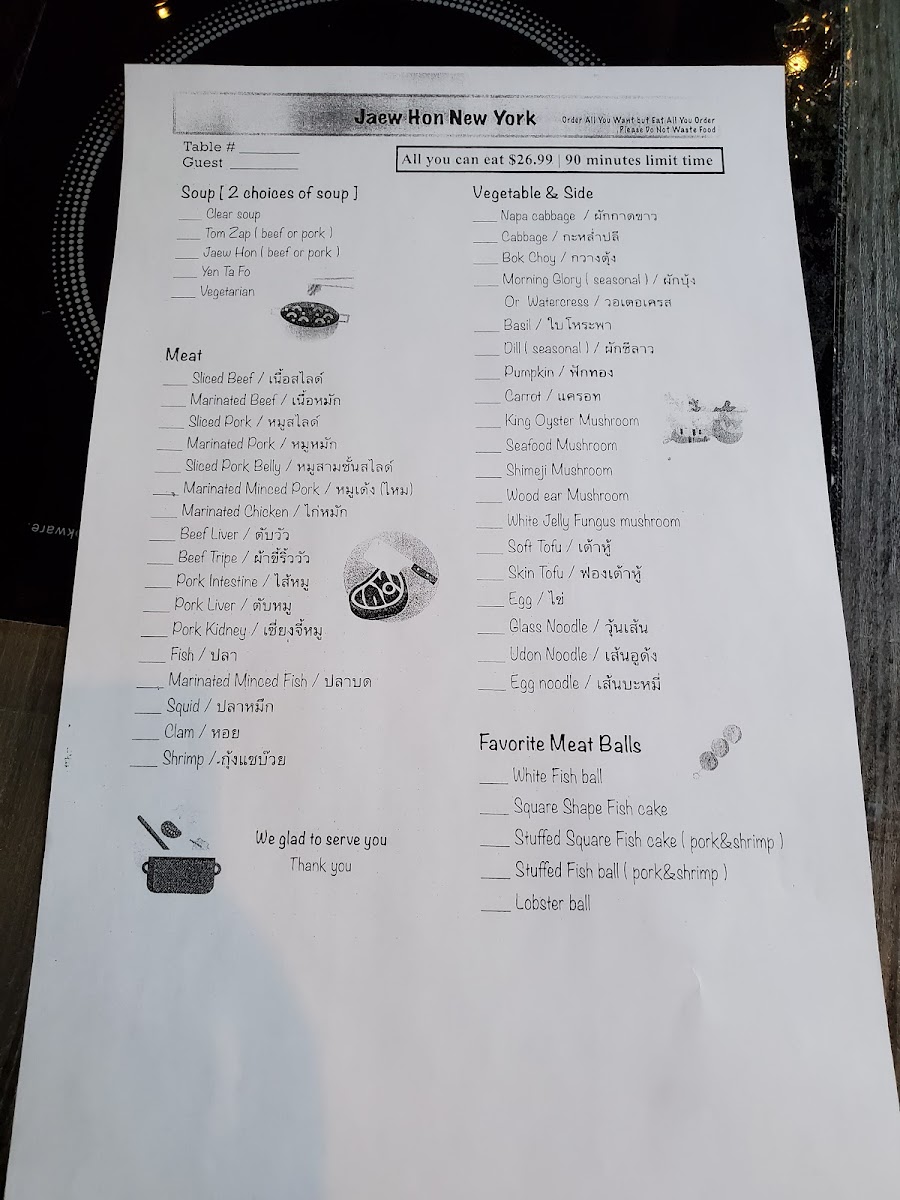 Jaew Hon New York
Order All You Want but Eat All You Order
Please Do Not Waste Food
Table # ________
Guest _________
All you can eat $26.99 | 90 minutes limit time
Soup [ 2 choices of soup ]
___ Clear soup
___ Tom Zap ( beef or pork )
___ Jaew Hon ( beef or pork )
___ Yen Ta Fo
___ Vegetarian
Meat
___ Sliced Beef / เนื้อสไลด์
___ Marinated Beef / เนื้อหมัก
___ Sliced Pork / หมูสไลด์
___ Marinated Pork / หมูหมัก
___ Sliced Pork Belly / หมูสามชั้นสไลด์
___ Marinated Minced Pork / หมูเด้ง (ไหม)
___ Marinated Chicken / ไก่หมัก
___ Beef Liver / ตับวัว
___ Beef Tripe / ผ้าขี้ริ้ววัว
___ Pork Intestine / ไส้หมู
___ Pork Liver / ตับหมู
___ Pork Kidney / เซี่ยงจี้หมู
___ Fish / ปลา
___ Marinated Minced Fish / ปลาบด
___ Squid / ปลาหมึก
___ Clam / หอย
___ Shrimp / กุ้งแชบ๊วย
We glad to serve you
Thank you
Vegetable & Side
___ Napa cabbage / ผักกาดขาว
___ Cabbage / กะหล่ำปลี
___ Bok Choy / กวางตุ้ง
___ Morning Glory ( seasonal ) / ผักบุ้ง
Or Watercress / วอเตอเครส
___ Basil / ใบโหระพา
___ Dill ( seasonal ) / ผักชีลาว
___ Pumpkin / ฟักทอง
___ Carrot / แครอท
___ King Oyster Mushroom
___ Seafood Mushroom
___ Shimeji Mushroom
___ Wood ear Mushroom
___ White Jelly Fungus mushroom
___ Soft Tofu / เต้าหู้
___ Skin Tofu / ฟองเต้าหู้
___ Egg / ไข่
___ Glass Noodle / วุ้นเส้น
___ Udon Noodle / เส้นอูด้ง
___ Egg noodle / เส้นบะหมี่
Favorite Meat Balls
___ White Fish ball
___ Square Shape Fish cake
___ Stuffed Square Fish cake ( pork&shrimp )
___ Stuffed Fish ball ( pork&shrimp )
___ Lobster ball